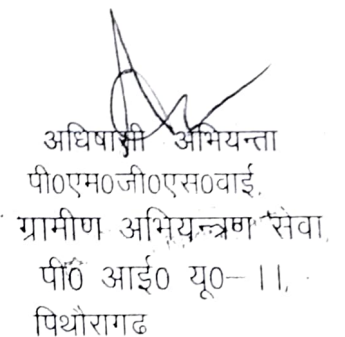 अधिषासी अभियन्ता
पी0एम0जी0एस0वाई,
ग्रामीण अभियन्त्रण सेवा,
पी0 आई0 यू0– ।।,
पिथौरागढ